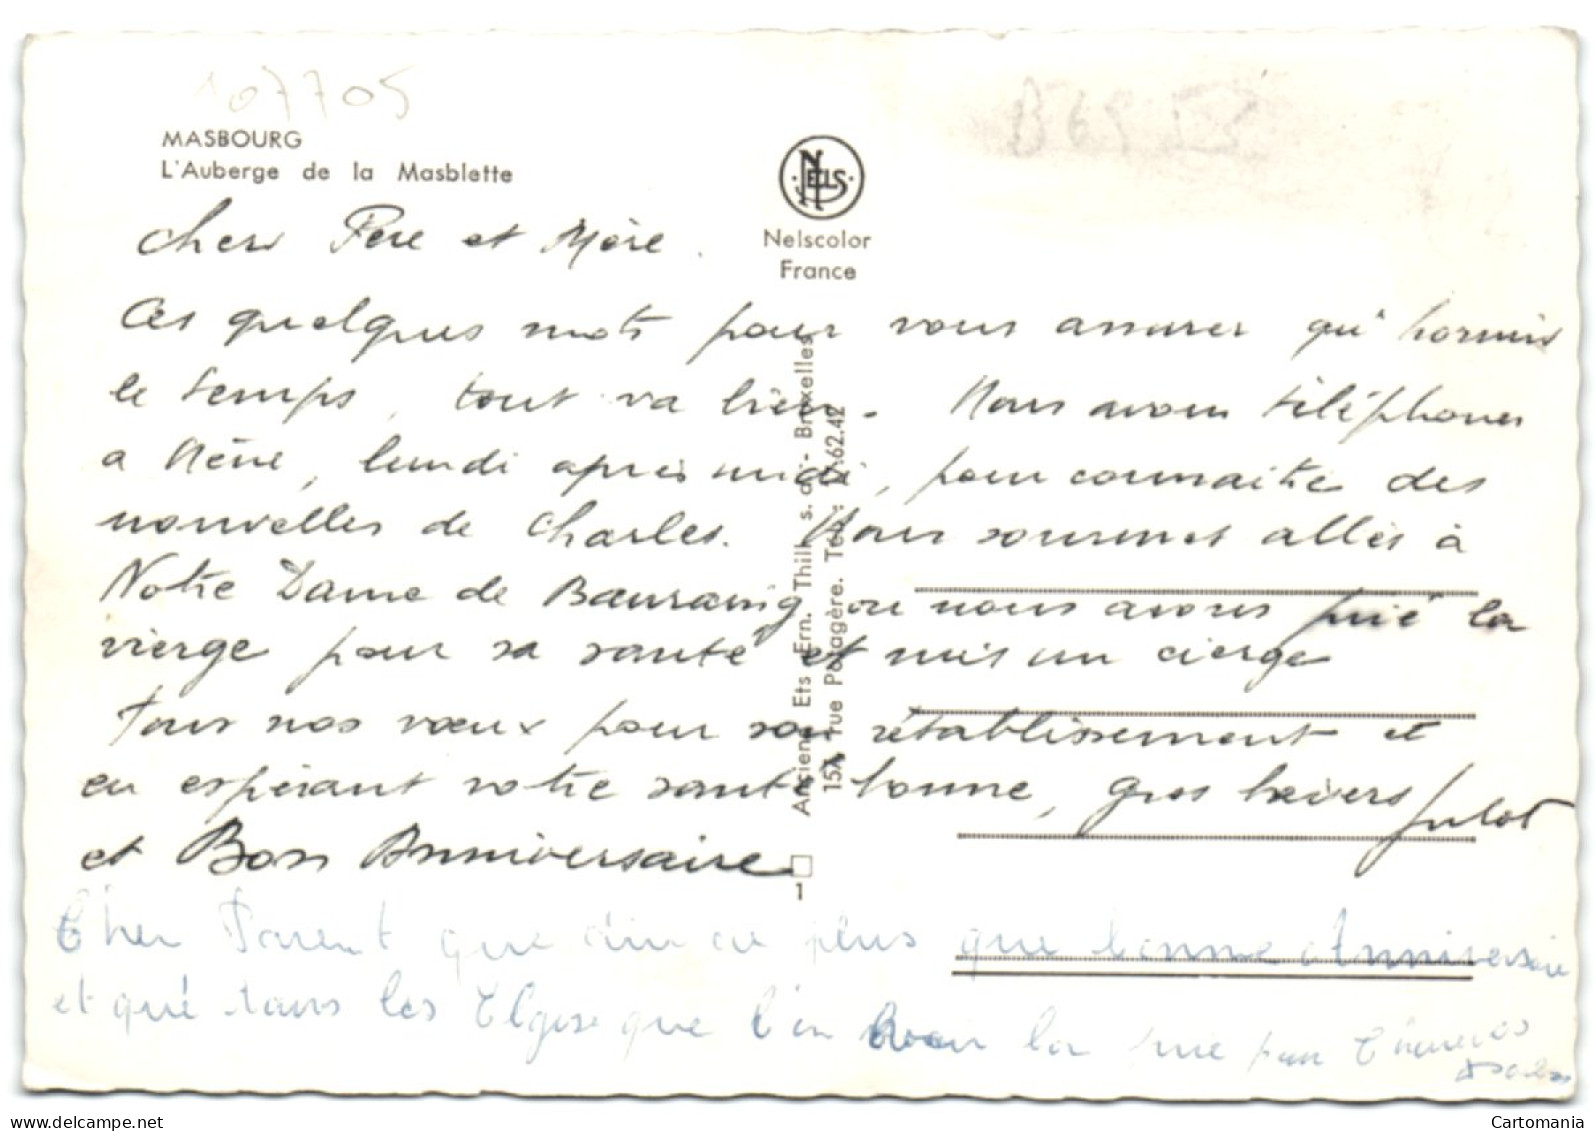 107705
MASBOURG
L'Auberge de la Masblette
NELS
Nelscolor
France
Chers Père et Mère.
Ces quelques mots pour vous assurer qu'hormis
le temps, tout va bien. Nous avons téléphoner
a Mère, lundi après midi, pour connaitre des
nouvelles de Charles. Nous sommes allés à
Notre Dame de Bauraing ou nous avons prié la
vierge pour sa santé et mis un cierge
Tous nos vœux pour son rétablissement et
en espérant votre santé bonne, gros baisers Julot
et Bon Anniversaire
Anciens Ets Ern. Thill s. a. - Bruxelles
15A, rue Potagère. Tél.: 17.62.42
1
Cher Parent que dire de plus que bonne Anniversaire
et que dans les que l'on la prie pour